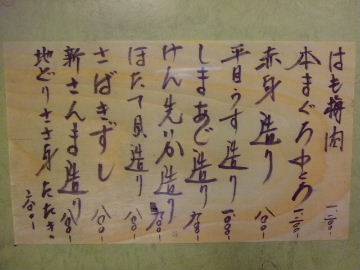 はも梅肉 一、二〇〇-
本まぐろ中とろ 一、二〇〇-
赤身造り 八〇〇-
平目うす造り 一、〇〇〇-
しまあじ造り 九五〇-
けん先いか造り 九〇〇-
ほたて貝造り 八〇〇-
さばきずし 八〇〇-
新さんま造り 八〇〇-
地どりささ身たたき 六〇〇-